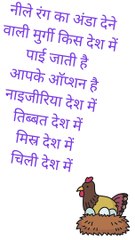 नीले रंग का अंडा देने
वाली मुर्गी किस देश में
पाई जाती है
आपके ऑप्शन है
नाइजीरिया देश में
तिब्बत देश में
मिस्र देश में
चिली देश में